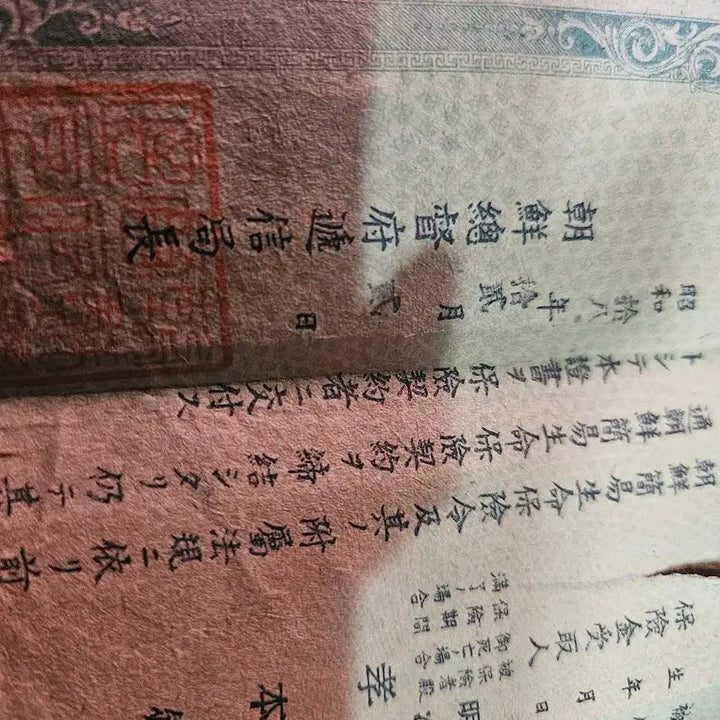 生年月日
保險金受取人
保險期間
滿了ノ場合
孝
本
朝鮮簡易生命保險令及其ノ附屬法規ニ依リ前
通朝鮮簡易生命保險契約ヲ締結シタリ仍テ其
トシテ本證書ヲ保險契約者ニ交付ス
昭和拾八年拾貳月貳 日
朝鮮總督府遞信局長